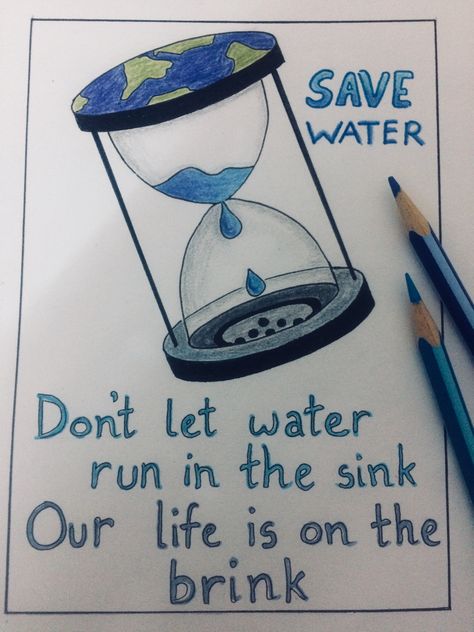 SAVE
WATER
Don't let water
run in the sink
Our life is on the
brink